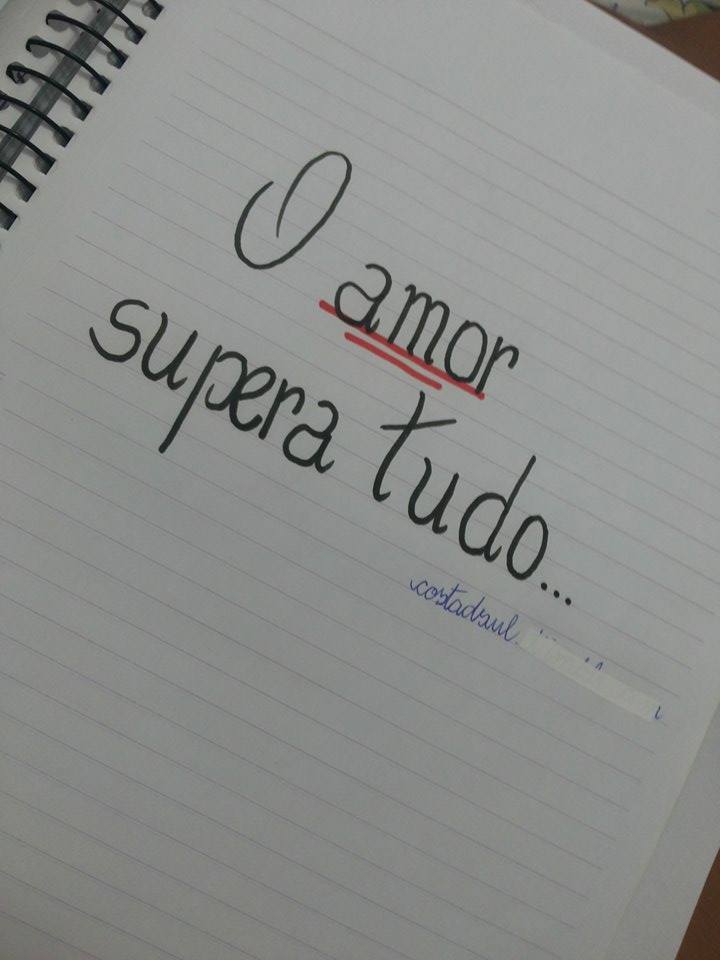 O amor
supera tudo...
costadsul.